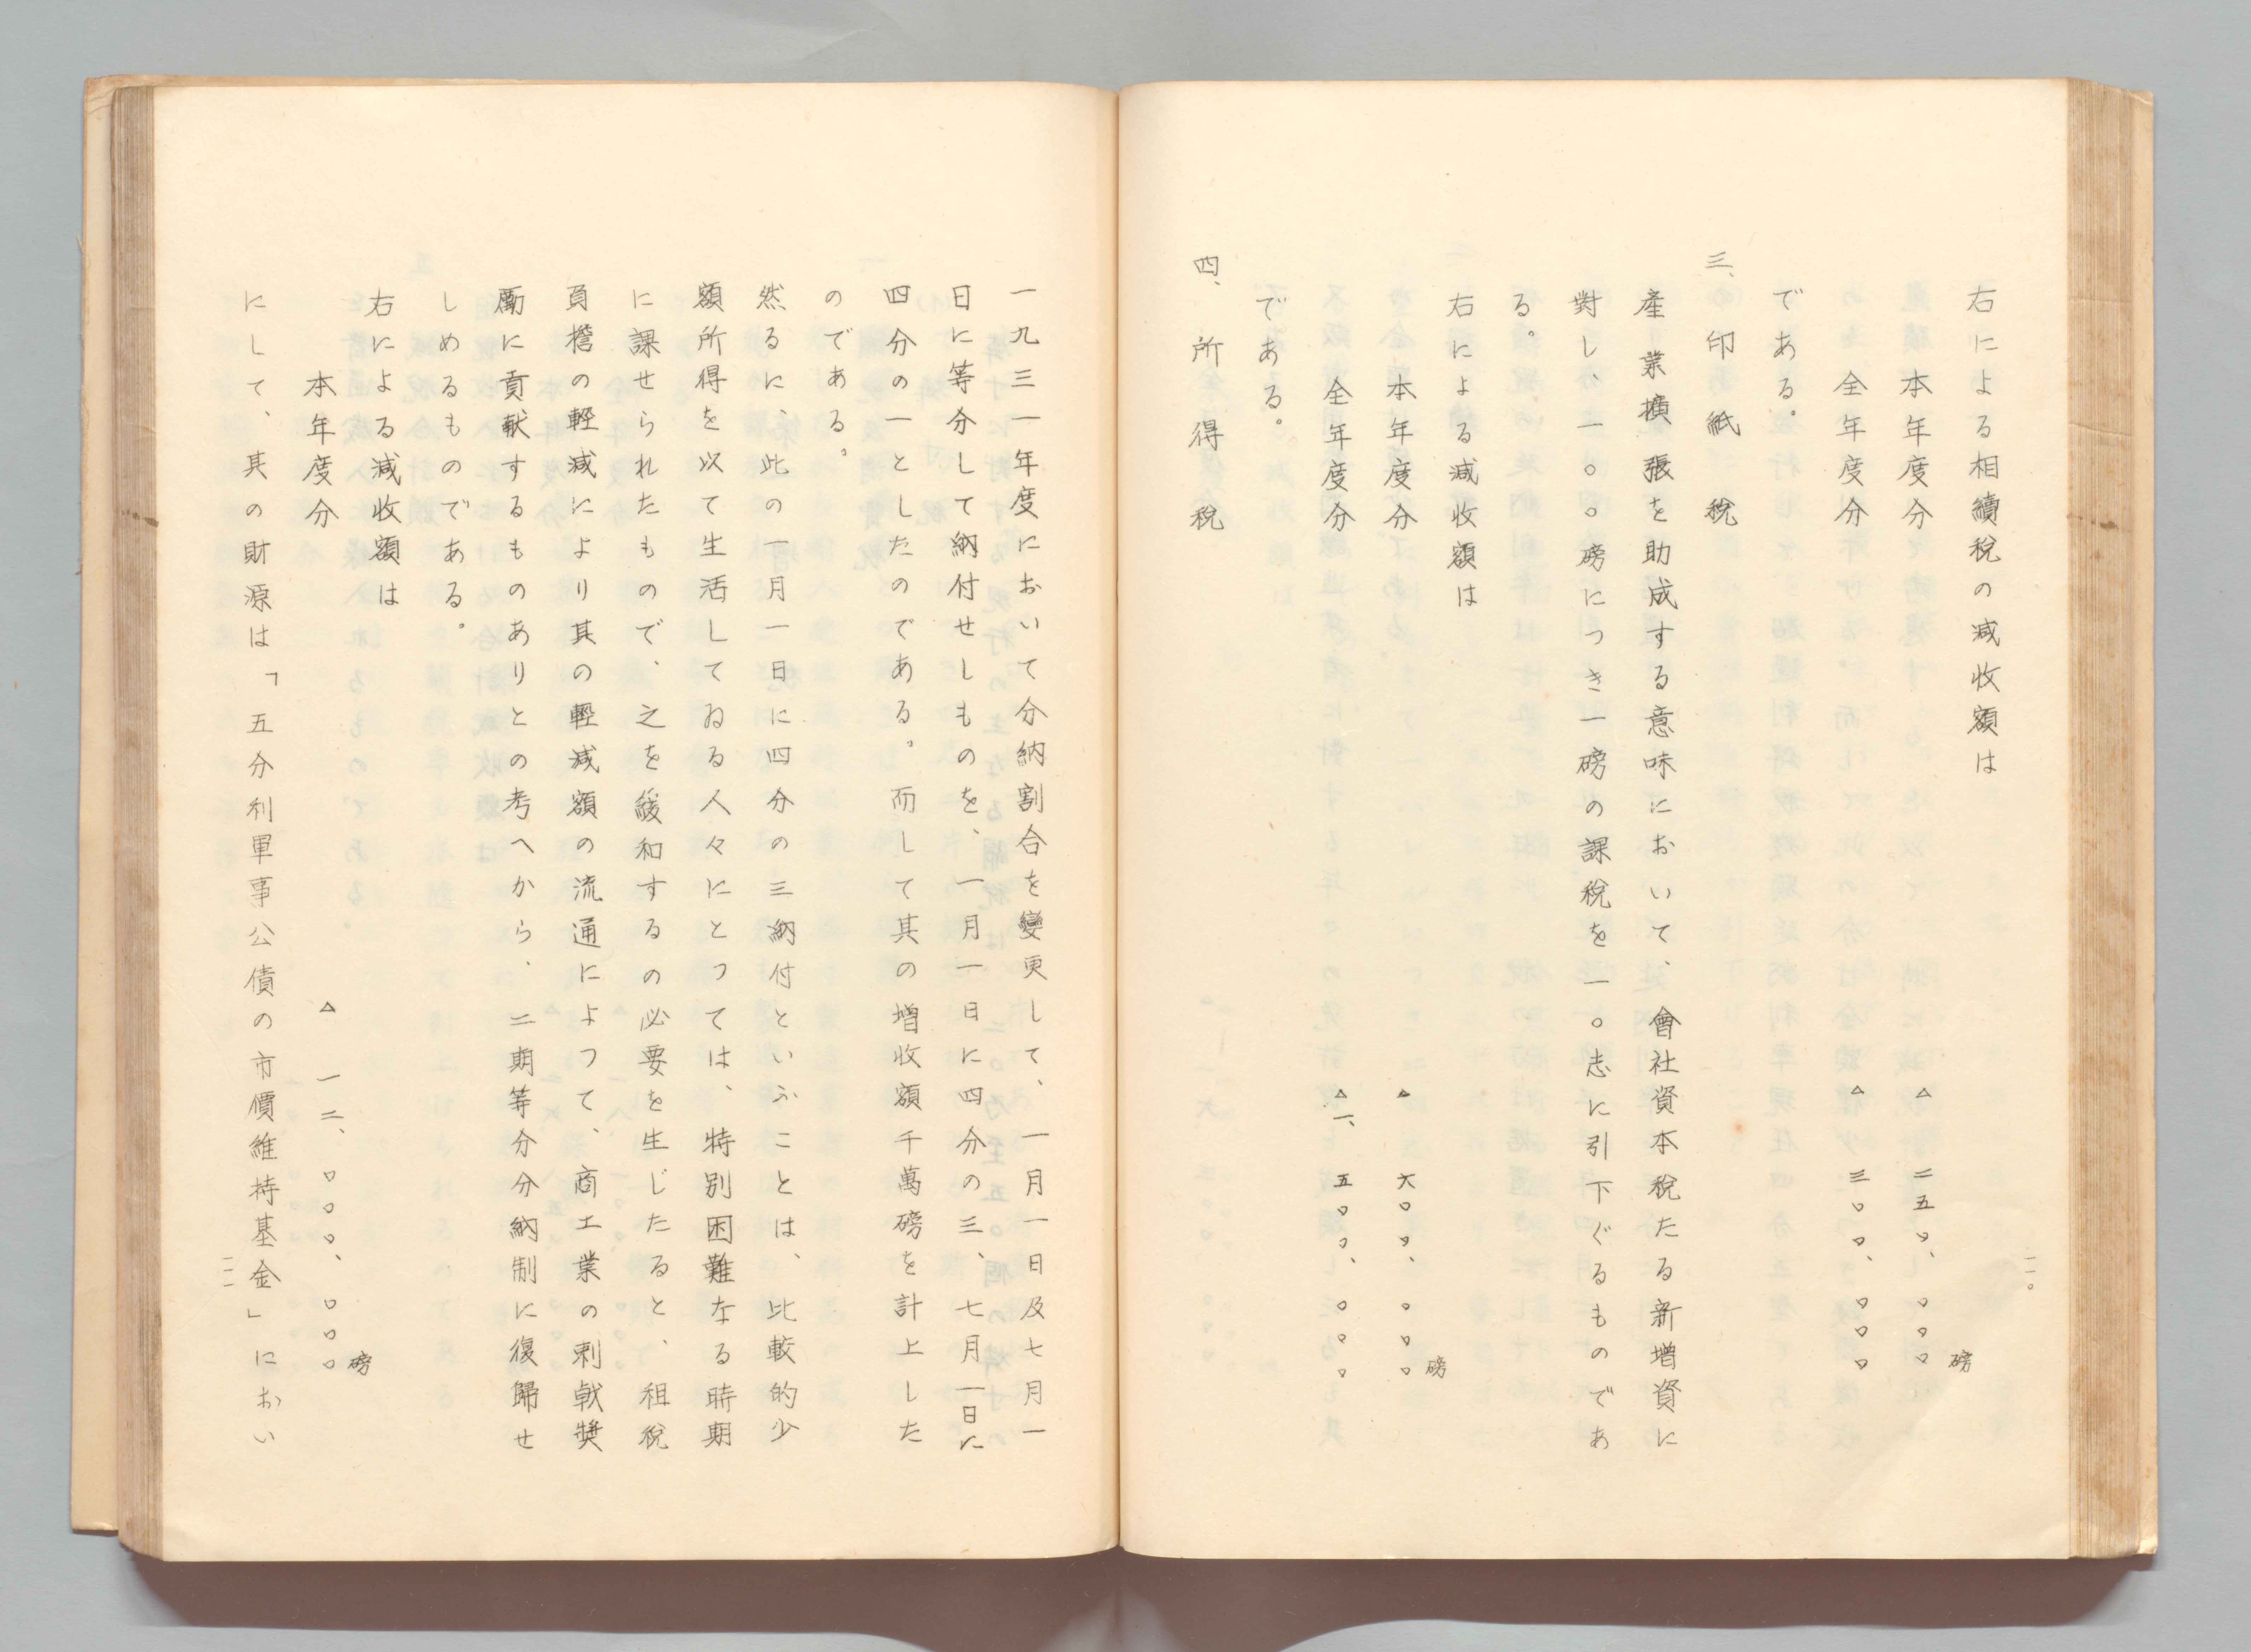 右による相續税の減收額は
磅
本年度分 △ 二五〇、〇〇〇
全年度分 △ 三〇〇、〇〇〇
である。
三、印紙税
産業擴張を助成する意味において、會社資本税たる新増資に
對し、一〇〇磅につき一磅の課税を一〇志に引下ぐるものであ
る。
右による減收額は
磅
本年度分 △ 六〇〇、〇〇〇
全年度分 △一、五〇〇、〇〇〇
である。
四、所得税
一一〇
一九三一年度において分納割合を變更して、一月一日及七月一
日に等分して納付せしものを、一月一日に四分の三、七月一日に
四分の一としたのである。而して其の増收額千萬磅を計上した
のである。
然るに、此の一月一日に四分の三納付といふことは、比較的少
額所得を以て生活してゐる人々にとつては、特別困難なる時期
に課せられたもので、之を緩和するの必要を生じたると、租税
負擔の輕減により其の輕減額の流通によつて、商工業の刺戟奬
勵に貢献するものありとの考へから、二期等分分納制に復歸せ
しめるものである。
右による減收額は
磅
本年度分 △ 一二、〇〇〇、〇〇〇
にして、其の財源は「五分利軍事公債の市價維持基金」におい
一一一